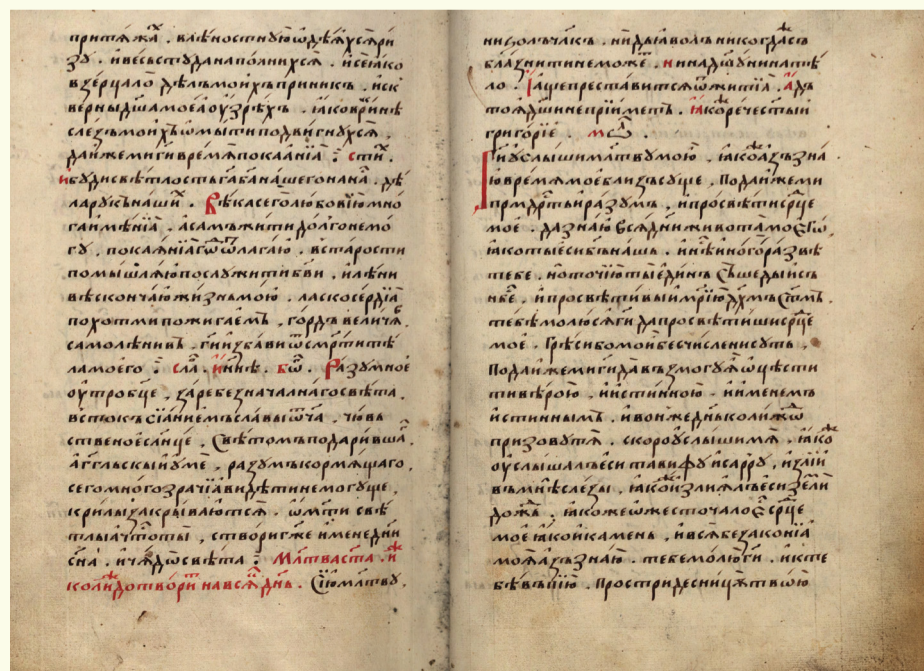 притѧжа . влѣностную ѡдѣѧхсѧ ри
зу . и весь студа наполнихсѧ . и се ꙗко
в зерцало дѣлъ моихъ приникъ . и ск
верны дша моеа оузрѣхъ . ꙗко врй нѣ
слезъ моихъ ѡмыти подвигнухсѧ ,
даиже ми ги времѧ покаанїа : сти .
и буди свѣтлость га ба нашего на на . дѣ
ла рукъ наши . Вѣка сего любовїю мно
га имѣнїа , а самъ жити долго немо
гу , покаанїа гѡ ѿлагаю , в старости
помышлѧю послужити бви , и лѣни
вѣ скончаю жизнь мою . ласкосердїа
похотми пожигаемъ , гордъ велича ,
самолѣнивъ . ги избави ѿ смрти тѣ
ла моего : сла . и ннѣ . бѡ . Разумное
оутробце , зарѣ безначалнаго свѣта ,
встокъ сїанїемъ славы ѡча , чювь
ственое слнце , Свѣтомъ подаривша ,
аггльскыи уме , разумъ кормѧщаго ,
сего многозрачїа видѣти немогуще ,
крилы закрываютсѧ . ѡ мти свѣ
тлыѧ чтоты , створи гже и мене дни
сна . и чѧдѡ свѣта : Мтва ста . и
колиждо твори на всѧ днь . Сїю мтву ,
ни золъ члкъ . ни дыавол никогда съ
блазнити не може . ни на дшу ни на тѣ
ло . І аще преставитсѧ ѿ житїа . адъ
тоѧ дши не прїиметъ . ꙗко рече стыи
григорїе .
Ги услыши мтву мою , ꙗко азъ зна
ю времѧ мое близъ суще , Подаиже ми
прмдрть и разумъ , и просвѣти срце
мое . да знаю всѧ дни живота моего ,
ꙗко ты еси бъ нашъ . и нѣ иного развѣ
тебе . но точїю ты единъ Сшедыи съ
нбе , и просвѣтивыи мрїю дхмъ стмъ .
тебѣ молюсѧ ги да просвѣтиши срце
мое . Грѣси бо мои бесчислени суть ,
Подаиже ми ги да възмогу ѧ ѡцѣсти
ти вѣрою , и истинною . и именемъ
истиннымъ , и вонже днь колиждо
призову тѧ . скоро услыши мѧ . ꙗко
оуслышалъ еси тавифу и сарру , и злїи
въ мнѣ слезы , ꙗко излиалъ еси зелїи
дождь . ꙗкоже ѡжесточало срце
мое ꙗко и камень , и всѧ беззаконїа
моѧ азъ знаю . тебе молю ги . и к те
бѣ въпїю . Простри десницѧ твою